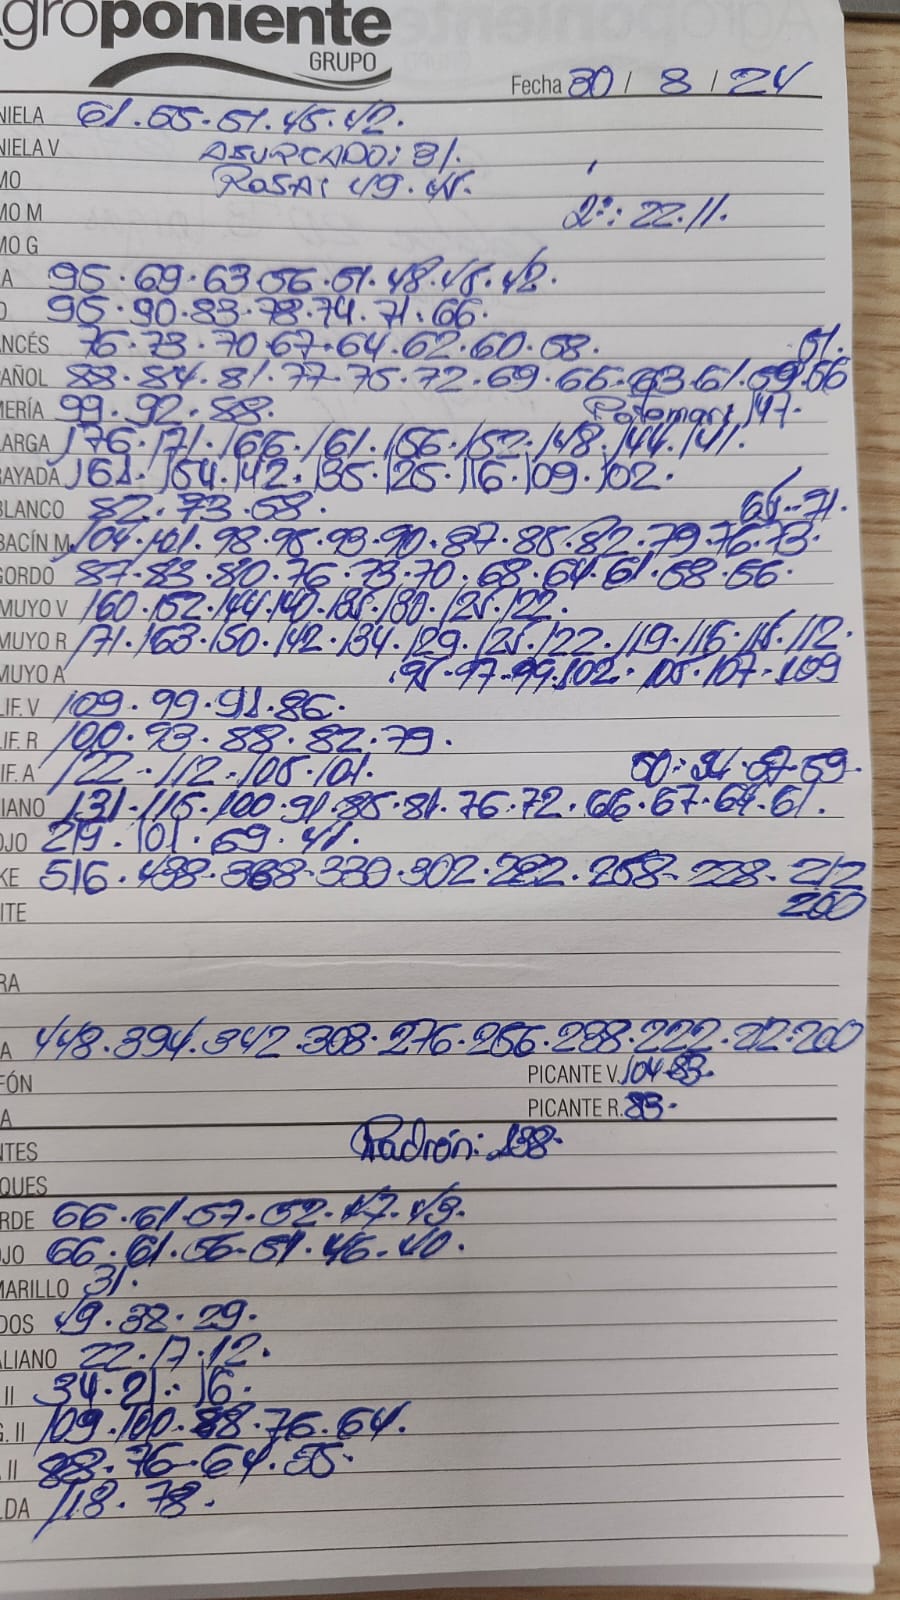 groponiente
GRUPO
Fecha 30 / 8 / 24
NIELA 61.55.51.45.42.
NIELA V ASURCADO: 31.
MO ROSA: 49.45.
MO M 2ª: 22.11.
MO G
A 95.69.63.56.51.48.45.42.
O 95.90.83.78.74.71.66.
NCÉS 76.73.70.67.64.62.60.58. 51.
AÑOL 88.84.81.77.75.72.69.66.63.61.59.56
MERÍA 99.92.88. 147.
LARGA 176.171.166.161.156.152.148.144.141.
RAYADA 161.154.142.135.125.116.109.102.
BLANCO 82.73.58. 71.
BACÍN M. 104.101.98.95.93.90.87.85.82.79.76.73.
GORDO 87.83.80.76.73.70.68.64.61.58.56.
MUYO V 160.152.144.140.135.130.125.122.
MUYO R 171.163.150.142.134.129.125.122.119.116.115.112.
MUYO A 95.97.99.102.105.107.109
LIF. V 109.99.91.86.
LIF. R 100.93.88.82.79.
IF. A 122.112.105.101. 50.54.57.59.
IANO 131.115.100.91.85.81.76.72.66.67.64.61.
OJO 219.101.69.41.
KE 516.438.368.330.302.282.258.228.212
ITE 200
RA
A 448.394.342.308.276.256.238.222.212.200
FÓN PICANTE V. 104.83.
A PICANTE R. 83.
NTES Padrón: 138.
QUES
RDE 66.61.57.52.47.43.
OJO 66.61.56.51.46.40.
MARILLO 31.
DOS 49.38.29.
ALIANO 22.17.12.
II 34.21.16.
G. II 109.100.88.76.64.
II 88.76.64.55.
LDA 118.78.